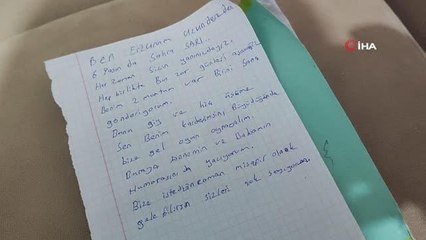 İHA
BEN Erzurum Uzundereden
6 Yaşın da Şahin SARI.
Her Zaman Sizin yanınızdayız.
Hep birlikte Bin zor günleri aşacağız
Benim 2 montum var Birini Sana
gönderiyorum.
Onu giy ve hiç üşüme
Sen Benim kardeşimsin Büyüdüğünde
bize gel oyun oynayalım.
Buraya Annemin ve Babamın
Numarasını da yazıyorum.
Bize istediğin zaman misafir olarak
gele bilirsin sizleri çok seviyorum